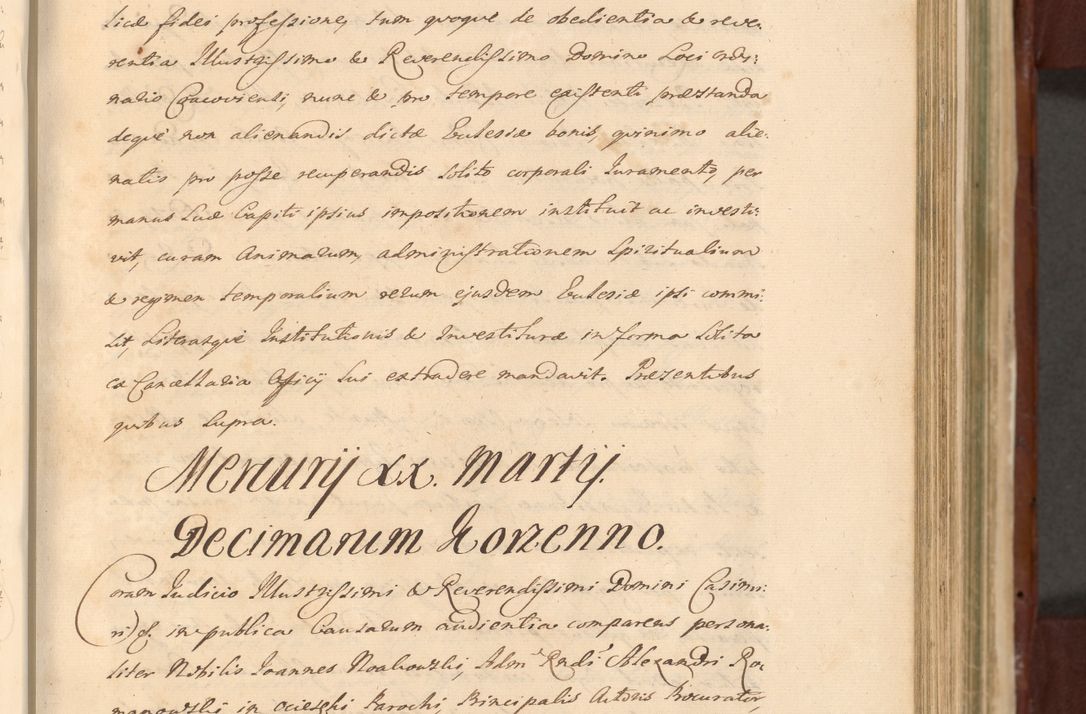 licæ fidei professione, tum quoque de obedientia & reve-
rentia Illustrissimo & Reverendissimo Domino Loci ordi-
nario Cracoviensi, nunc & pro tempore existenti præstanda
deque non alienandis dictæ Eclesiæ bonis, quinimo alie-
natis pro posse recuperandis solito corporali Iuramento, per
manus suæ Capiti ipsius impositionem instituit ac investi-
vit, curam Animarum, administrationem Spiritualium
& regimen temporalium rerum ejusdem Eclesiæ ipsi commi-
sit, Literasque Institutionis & Investituræ in forma solita
ex Cancellaria Officij sui extradere mandavit. Præsentibus
quibus supra.
Mercurij XX. Martij.
Decimarum Korzenno.
Coram Iudicio Illustrissimi & Reverendissimi Domini Casimi-
ri) &. in publica Causarum audientia comparens persona-
liter Nobilis Ioannes Noakowski, Admˢ Rndiˢ Alexandri Ro-
manowski in Ocieseki Parochi, Principalis Actoris Procurator,